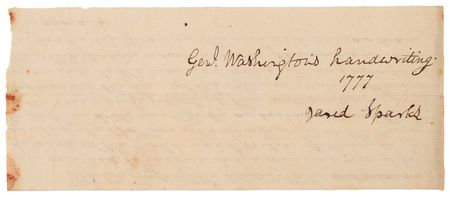 Genl. Washington's handwriting.
1777
Jared Sparks